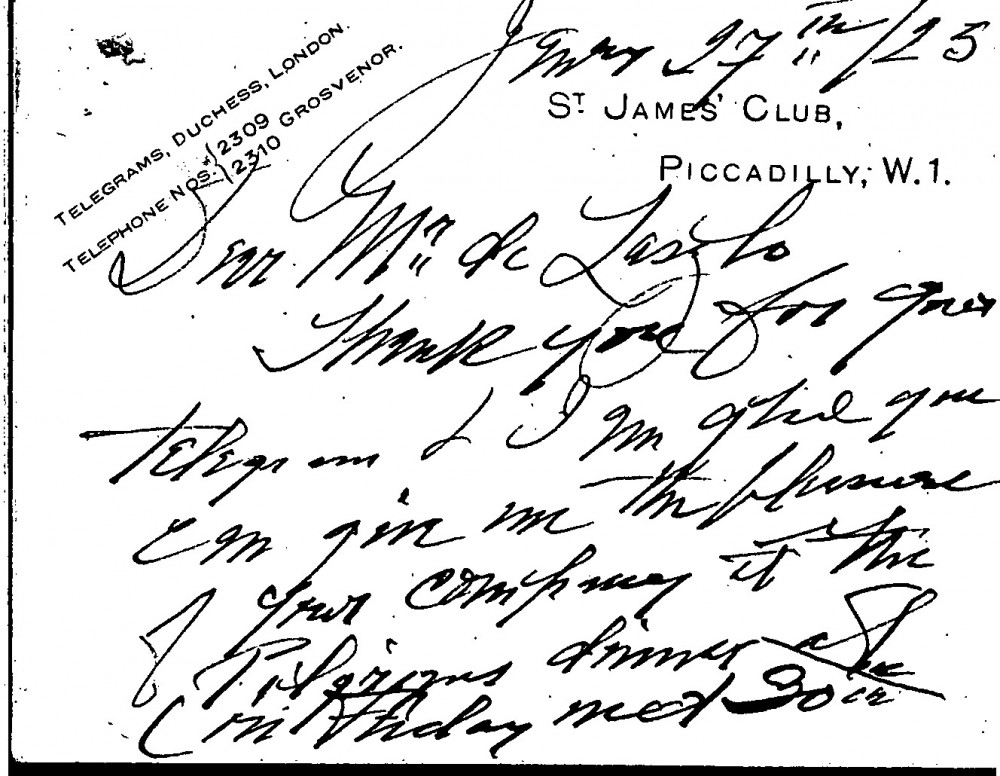 Jany 27th/25
TELEGRAMS, DUCHESS, LONDON.
TELEPHONE NOS. { 2309 2310 GROSVENOR.
ST JAMES' CLUB,
PICCADILLY, W.1.
Dear Mr. de Laszlo
Thank you for your
telegram & I am glad you
can give me the pleasure
of your company at the
Pilgrims dinner
(on Friday next 30th